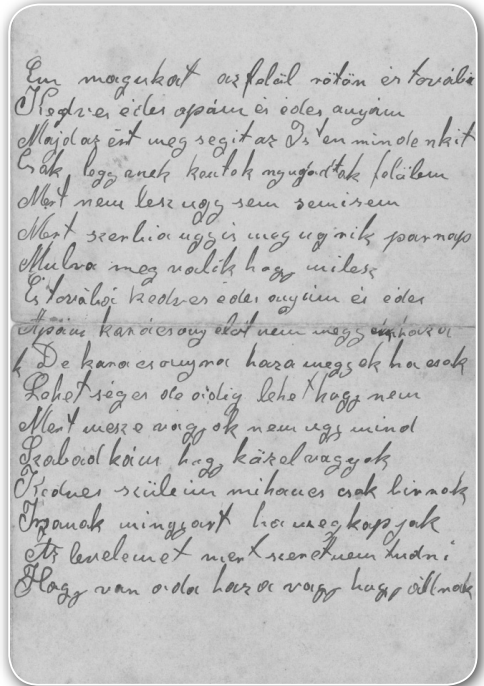 Em magukat az felöl rötön és továbá
Kedves édes apám és édes anyám
Majd az ért meg segit az Isten mindenkit
Csak leggyenek kentok nyugodtak felölem
Mert nem lesz ugy sem semisem
Mert szerbia ugy is meg ugrik par nap
Mulva meg valik hogy milesz
És továbá kedves édes anyám és édes
Apám karácsony elöt nem megyek haza
De karacsonyra haza megyek ha csak
Lehetséges de adig lehet hogy nem
Mert mesze vagyok nem ugy mind
Szabadkám hogy közel vagyok
Kedves szüleim mihancs csak birnok
Irjanak mingyart ha megkapjak
Az levelemet mert szeretnem tudni
Hogy van oda haza vagy hogy állnak